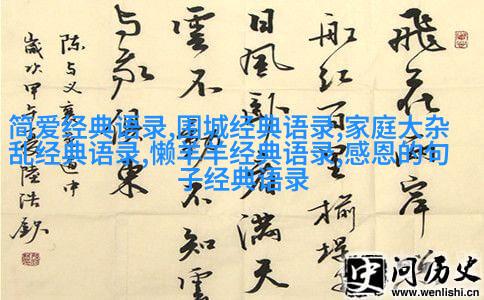 简爱经典语录,围城经典语录,家庭大杂
乱经典语录,懒羊羊经典语录,感恩的句
子经典语录
飛花兩岸
船红百里榆堤
日風卧看滿天
雲不動不知雲
与我俱東
陈与义襄邑道中
歲次甲午陸浩
问历史
www.wenlishi.com